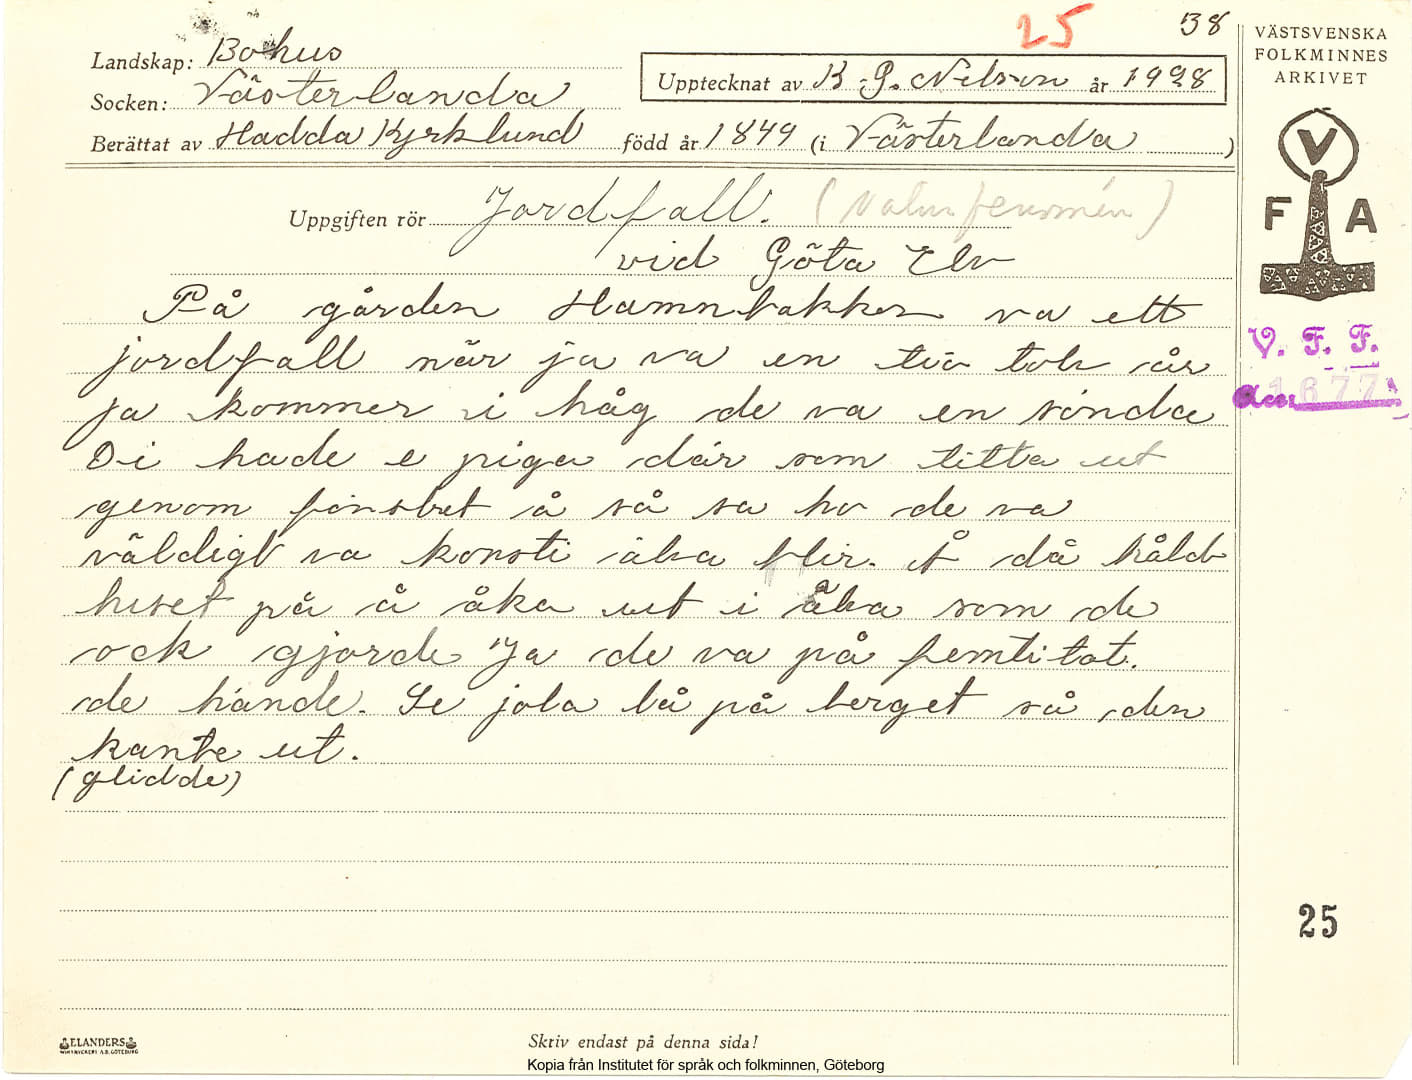 25 38
Landskap: Bohus
Socken: Västerlanda
Upptecknat av K. G. Nilsson år 1928
Berättat av Hadda Kyrklund född år 1849 (i Västerlanda)
Uppgiften rör Jordfall. (Naturfenomén)
vid Göta Elv
På gården Hamnbakken va ett
jordfall när ja va en tie tolv år
ja kommer i håg de va en sönda
Di hade e piga där som titta ut
genom fönstret å så sa ho de va
väldigt va konsti älva blir. Å då håldt
huset på å åka ut i älva som de
ock gjorde Ja de va på femtitat.
de hände. Se jola lå på berget så den
kante ut.
(glidde)
VÄSTSVENSKA
FOLKMINNES
ARKIVET
V
F A
V. F. F.
Acc. 1677
25
ELANDERS
BOKTRYCKERI A.B. GÖTEBORG
Skriv endast på denna sida!
Kopia från Institutet för språk och folkminnen, Göteborg